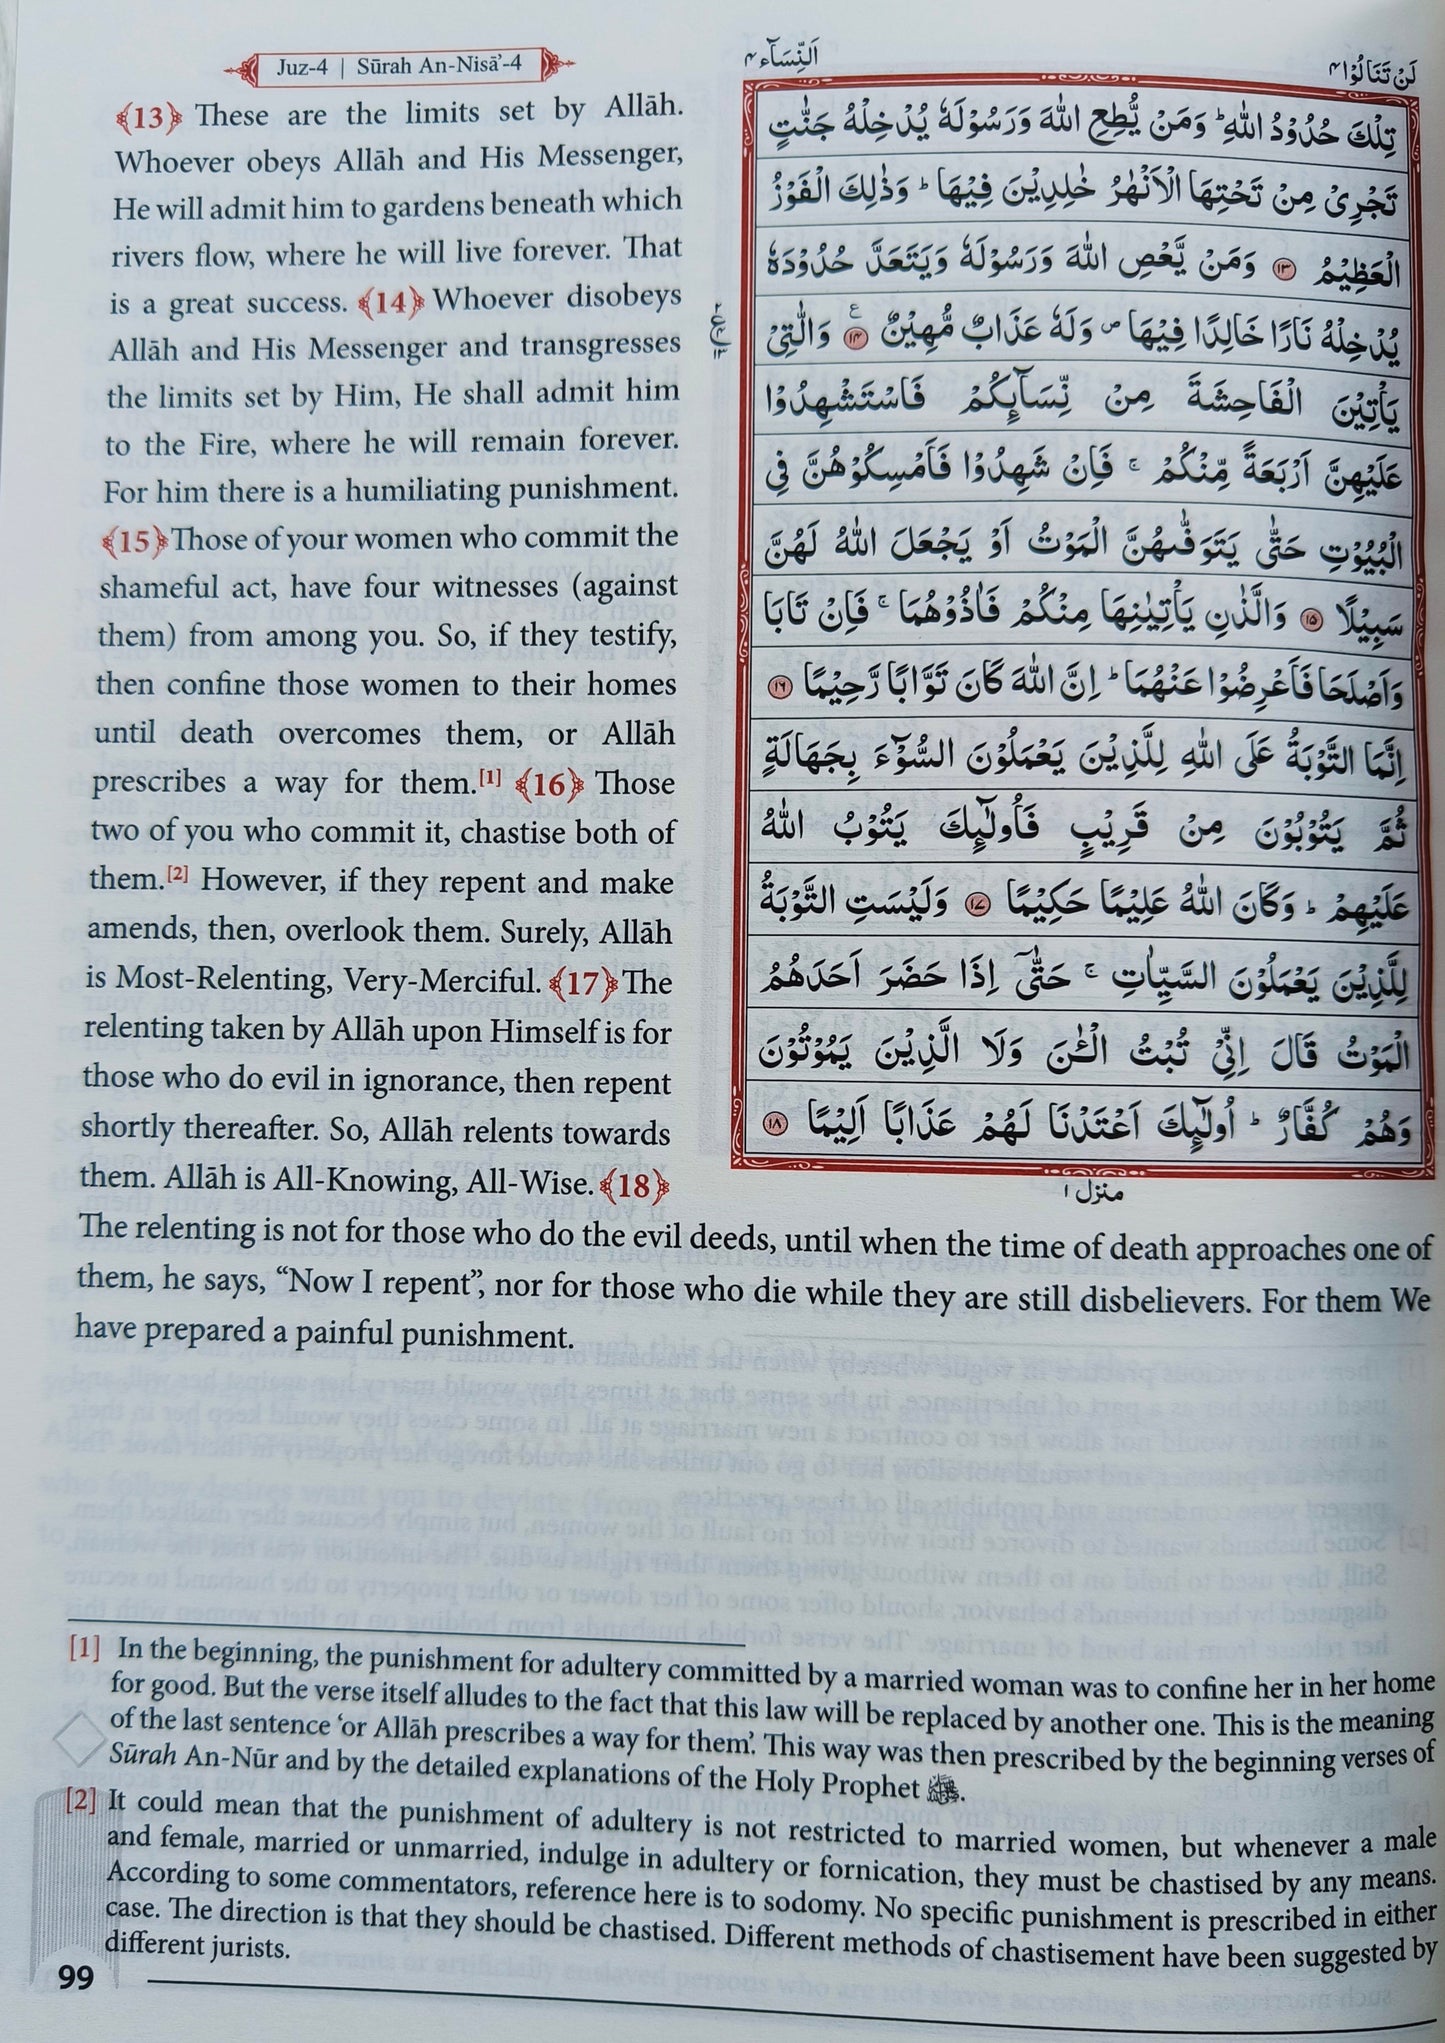 Juz-4 | Sūrah An-Nisā’-4
اَلنِّسَآء ٤
لَنْ تَنَالُوْا ٤
﴾13﴿ These are the limits set by Allāh.
Whoever obeys Allāh and His Messenger,
He will admit him to gardens beneath which
rivers flow, where he will live forever. That
is a great success. ﴾14﴿ Whoever disobeys
Allāh and His Messenger and transgresses
the limits set by Him, He shall admit him
to the Fire, where he will remain forever.
For him there is a humiliating punishment.
﴾15﴿ Those of your women who commit the
shameful act, have four witnesses (against
them) from among you. So, if they testify,
then confine those women to their homes
until death overcomes them, or Allāh
prescribes a way for them.[1] ﴾16﴿ Those
two of you who commit it, chastise both of
them.[2] However, if they repent and make
amends, then, overlook them. Surely, Allāh
is Most-Relenting, Very-Merciful. ﴾17﴿ The
relenting taken by Allāh upon Himself is for
those who do evil in ignorance, then repent
shortly thereafter. So, Allāh relents towards
them. Allāh is All-Knowing, All-Wise. ﴾18﴿
تِلْكَ حُدُوْدُ اللّٰهِ ؕ وَمَنْ يُّطِعِ اللّٰهَ وَرَسُوْلَهٗ يُدْخِلْهُ جَنّٰتٍ
تَجْرِىْ مِنْ تَحْتِهَا الْاَنْهٰرُ خٰلِدِيْنَ فِيْهَا ؕ وَذٰلِكَ الْفَوْزُ
الْعَظِيْمُ ۝١٣ وَمَنْ يَّعْصِ اللّٰهَ وَرَسُوْلَهٗ وَيَتَعَدَّ حُدُوْدَهٗ
يُدْخِلْهُ نَارًا خَالِدًا فِيْهَا ۪ وَلَهٗ عَذَابٌ مُّهِيْنٌ ۝١٤ وَالّٰتِىْ
يَاْتِيْنَ الْفَاحِشَةَ مِنْ نِّسَآئِكُمْ فَاسْتَشْهِدُوْا
عَلَيْهِنَّ اَرْبَعَةً مِّنْكُمْ ۚ فَاِنْ شَهِدُوْا فَاَمْسِكُوْهُنَّ فِى
الْبُيُوْتِ حَتّٰى يَتَوَفّٰىهُنَّ الْمَوْتُ اَوْ يَجْعَلَ اللّٰهُ لَهُنَّ
سَبِيْلًا ۝١٥ وَالَّذٰنِ يَاْتِيٰنِهَا مِنْكُمْ فَاٰذُوْهُمَا ۚ فَاِنْ تَابَا
وَاَصْلَحَا فَاَعْرِضُوْا عَنْهُمَا ؕ اِنَّ اللّٰهَ كَانَ تَوَّابًا رَّحِيْمًا ۝١٦
اِنَّمَا التَّوْبَةُ عَلَى اللّٰهِ لِلَّذِيْنَ يَعْمَلُوْنَ السُّوْٓءَ بِجَهَالَةٍ
ثُمَّ يَتُوْبُوْنَ مِنْ قَرِيْبٍ فَاُولٰٓئِكَ يَتُوْبُ اللّٰهُ
عَلَيْهِمْ ؕ وَكَانَ اللّٰهُ عَلِيْمًا حَكِيْمًا ۝١٧ وَلَيْسَتِ التَّوْبَةُ
لِلَّذِيْنَ يَعْمَلُوْنَ السَّيِّاٰتِ ۚ حَتّٰٓى اِذَا حَضَرَ اَحَدَهُمُ
الْمَوْتُ قَالَ اِنِّىْ تُبْتُ الْـٰٔنَ وَلَا الَّذِيْنَ يَمُوْتُوْنَ
وَهُمْ كُفَّارٌ ؕ اُولٰٓئِكَ اَعْتَدْنَا لَهُمْ عَذَابًا اَلِيْمًا ۝١٨
منزل ١
The relenting is not for those who do the evil deeds, until when the time of death approaches one of
them, he says, “Now I repent”, nor for those who die while they are still disbelievers. For them We
have prepared a painful punishment.
[1] In the beginning, the punishment for adultery committed by a married woman was to confine her in her home
for good. But the verse itself alludes to the fact that this law will be replaced by another one. This is the meaning
of the last sentence ‘or Allāh prescribes a way for them’. This way was then prescribed by the beginning verses of
Sūrah An-Nūr and by the detailed explanations of the Holy Prophet ﷺ.
[2] It could mean that the punishment of adultery is not restricted to married women, but whenever a male
and female, married or unmarried, indulge in adultery or fornication, they must be chastised by any means.
According to some commentators, reference here is to sodomy. No specific punishment is prescribed in either
case. The direction is that they should be chastised. Different methods of chastisement have been suggested by
different jurists.
99